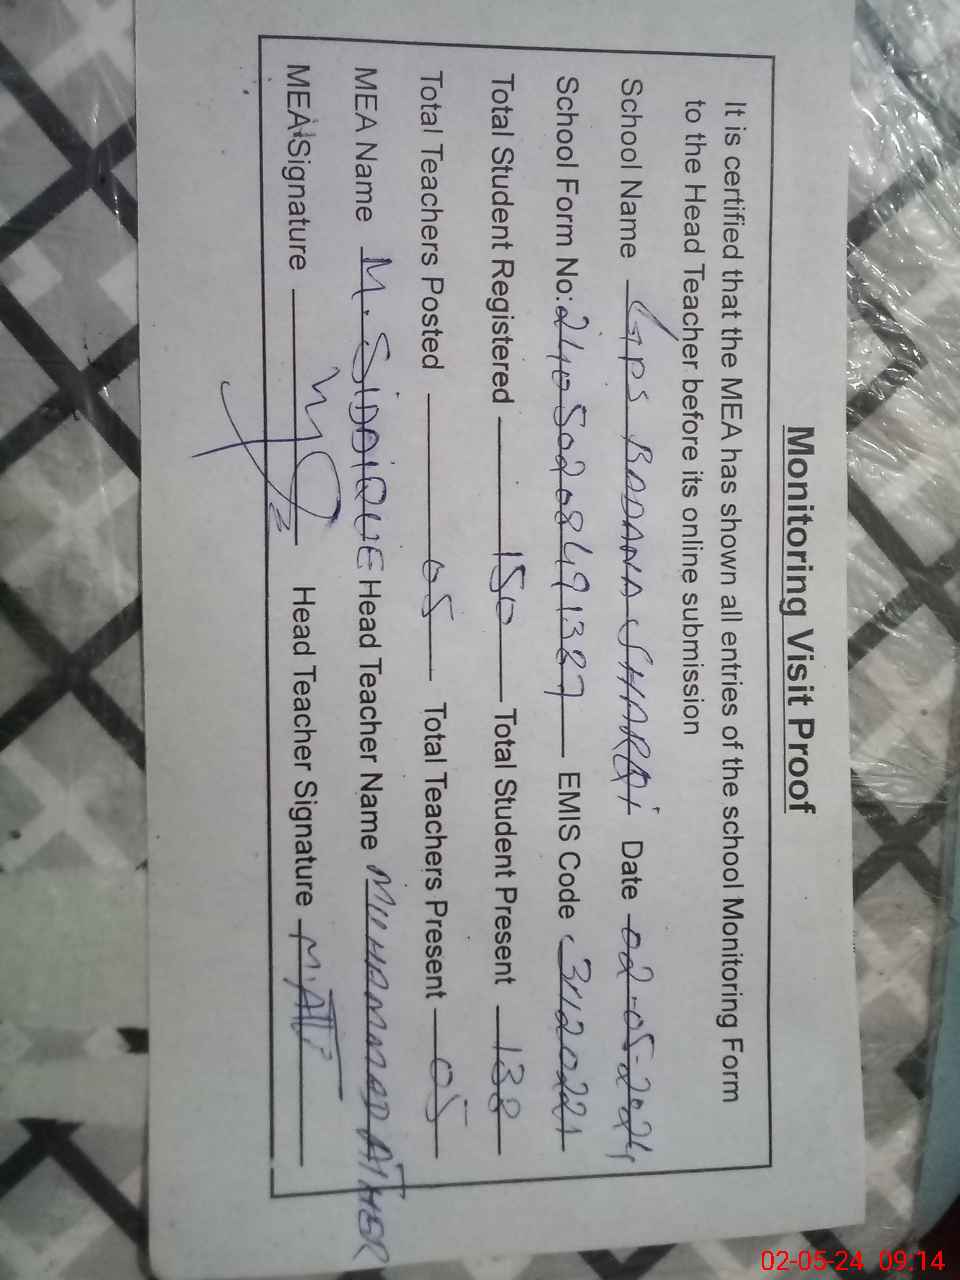 Monitoring Visit Proof
It is certified that the MEA has shown all entries of the school Monitoring Form
to the Head Teacher before its online submission
School Name GPS BADANA SHARQI Date 02-05-2024
School Form No: 24050208491387 EMIS Code 31120221
Total Student Registered 150 Total Student Present 138
Total Teachers Posted 05 Total Teachers Present 05
MEA Name M. SIDDIQUE Head Teacher Name MUHAMMAD ATHER
MEA Signature Head Teacher Signature
02-05-24 09:14